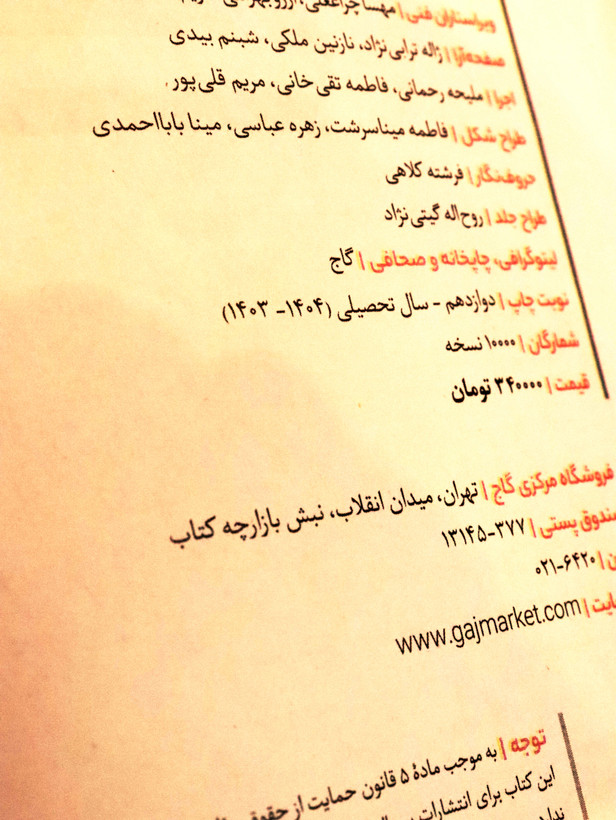 ویراستاران فنی | مهسا چراغعلی،
صفحه‌آرا | ژاله ترابی‌نژاد، نازنین ملکی، شبنم بیدی
اجرا | ملیحه رحمانی، فاطمه تقی‌خانی، مریم قلی‌پور
طراح شکل | فاطمه میناسرشت، زهره عباسی، مینا بابااحمدی
حروف‌نگار | فرشته کلاهی
طراح جلد | روح‌اله گیتی‌نژاد
لیتوگرافی، چاپخانه و صحافی | گاج
نوبت چاپ | دوازدهم - سال تحصیلی (۱۴۰۴- ۱۴۰۳)
شمارگان | ۱۰۰۰۰ نسخه
قیمت | ۳۴۰۰۰۰ تومان
فروشگاه مرکزی گاج | تهران، میدان انقلاب، نبش بازارچه کتاب
صندوق پستی | ۳۷۷-۱۳۱۴۵
| ۰۲۱-۶۴۲۰
| www.gajmarket.com
توجه | به موجب مادهٔ ۵ قانون حمایت از حقوق
این کتاب برای انتشارات
ندارد